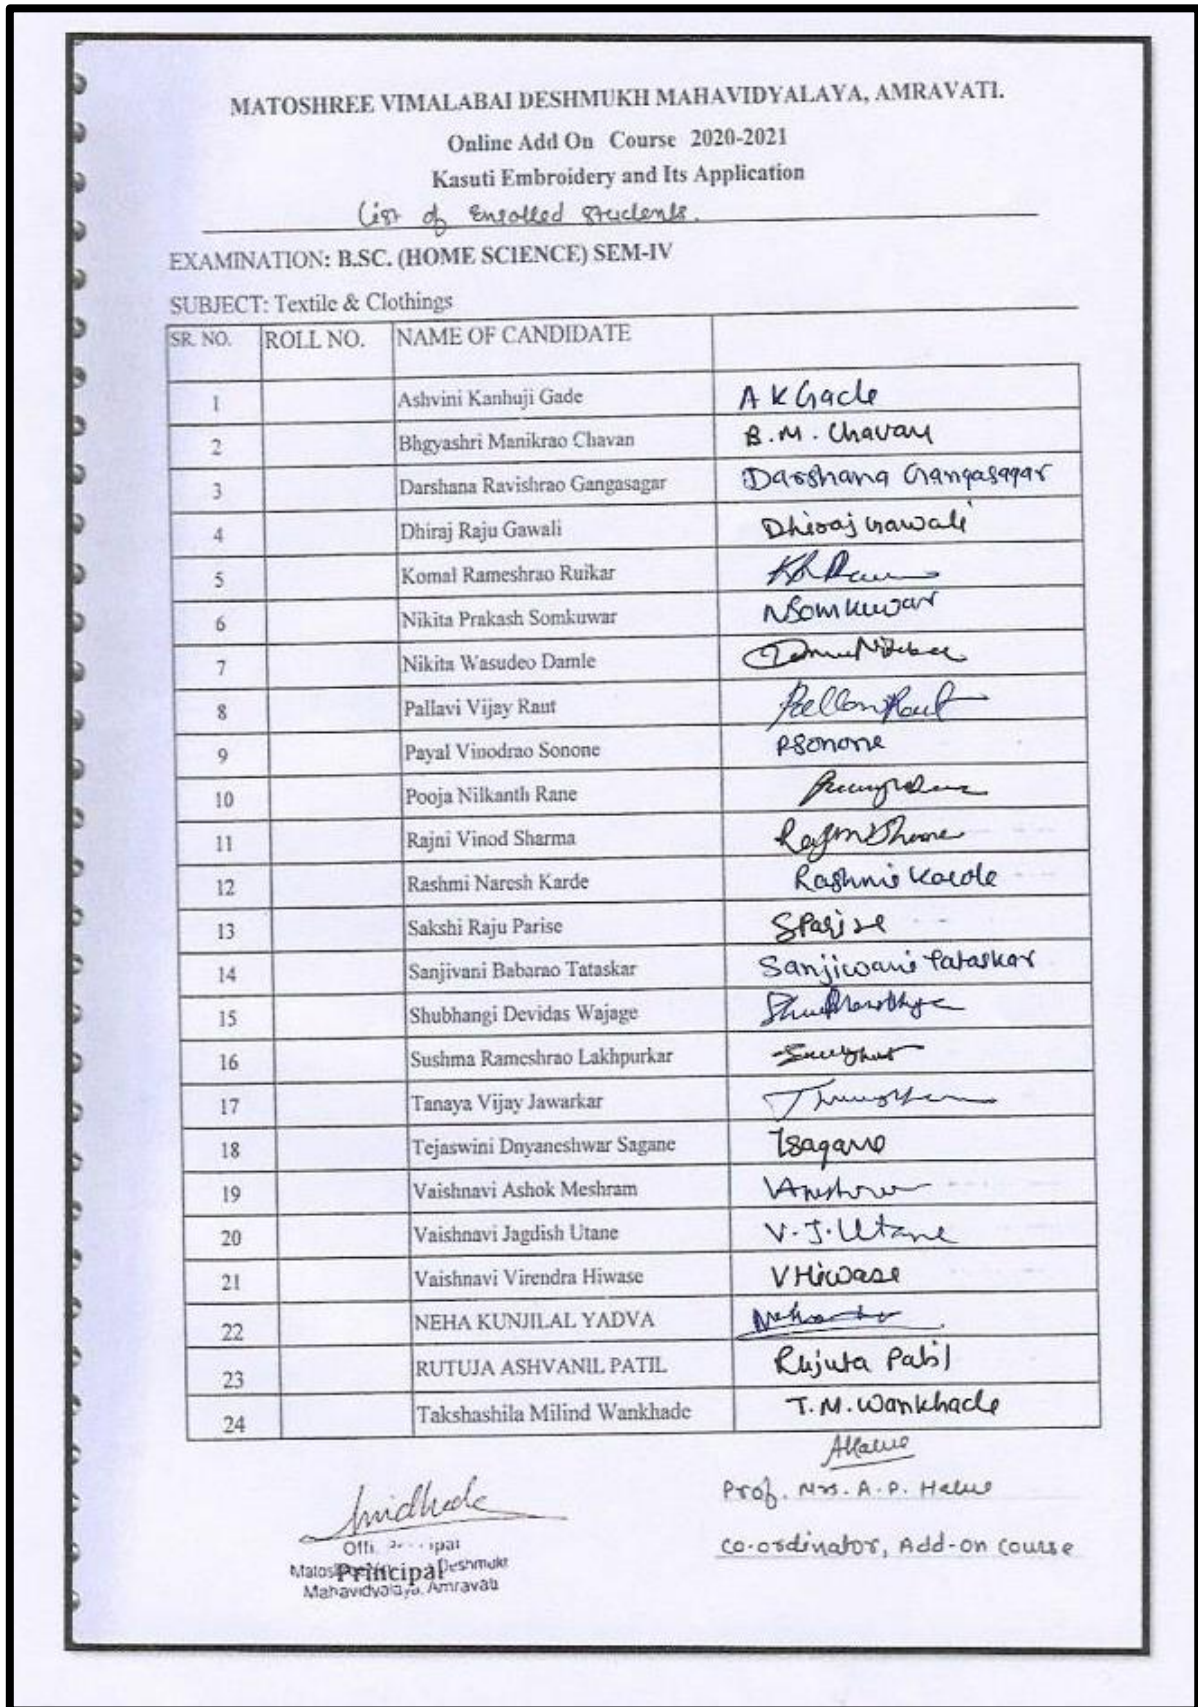 MATOSHREE VIMALABAI DESHMUKH MAHAVIDYALAYA, AMRAVATI.
Online Add On Course 2020-2021
Kasuti Embroidery and Its Application
List of Enrolled Students.
EXAMINATION: B.SC. (HOME SCIENCE) SEM-IV
SUBJECT: Textile & Clothings
SR. NO. ROLL NO. NAME OF CANDIDATE
1 Ashvini Kanhuji Gade A K Gade
2 Bhgyashri Manikrao Chavan B.M. Chavan
3 Darshana Ravishrao Gangasagar Darshana Gangasagar
4 Dhiraj Raju Gawali Dhiraj Gawali
5 Komal Rameshrao Ruikar
6 Nikita Prakash Somkuwar NSomkuwar
7 Nikita Wasudeo Damle
8 Pallavi Vijay Raut Pallavi Raut
9 Payal Vinodrao Sonone PSonone
10 Pooja Nilkanth Rane
11 Rajni Vinod Sharma
12 Rashmi Naresh Karde Rashmi Karde
13 Sakshi Raju Parise SParise
14 Sanjivani Babarao Tataskar Sanjiwani Tataskar
15 Shubhangi Devidas Wajage
16 Sushma Rameshrao Lakhpurkar
17 Tanaya Vijay Jawarkar
18 Tejaswini Dnyaneshwar Sagane TSagane
19 Vaishnavi Ashok Meshram
20 Vaishnavi Jagdish Utane V.J.Utane
21 Vaishnavi Virendra Hiwase VHiwase
22 NEHA KUNJILAL YADVA
23 RUTUJA ASHVANIL PATIL Rujuta Patil
24 Takshashila Milind Wankhade T.M. Wankhade
Prof. Mrs. A.P. Halue
Co-ordinator, Add-on course
Principal
Deshmukh
Mahavidyalaya, Amravati